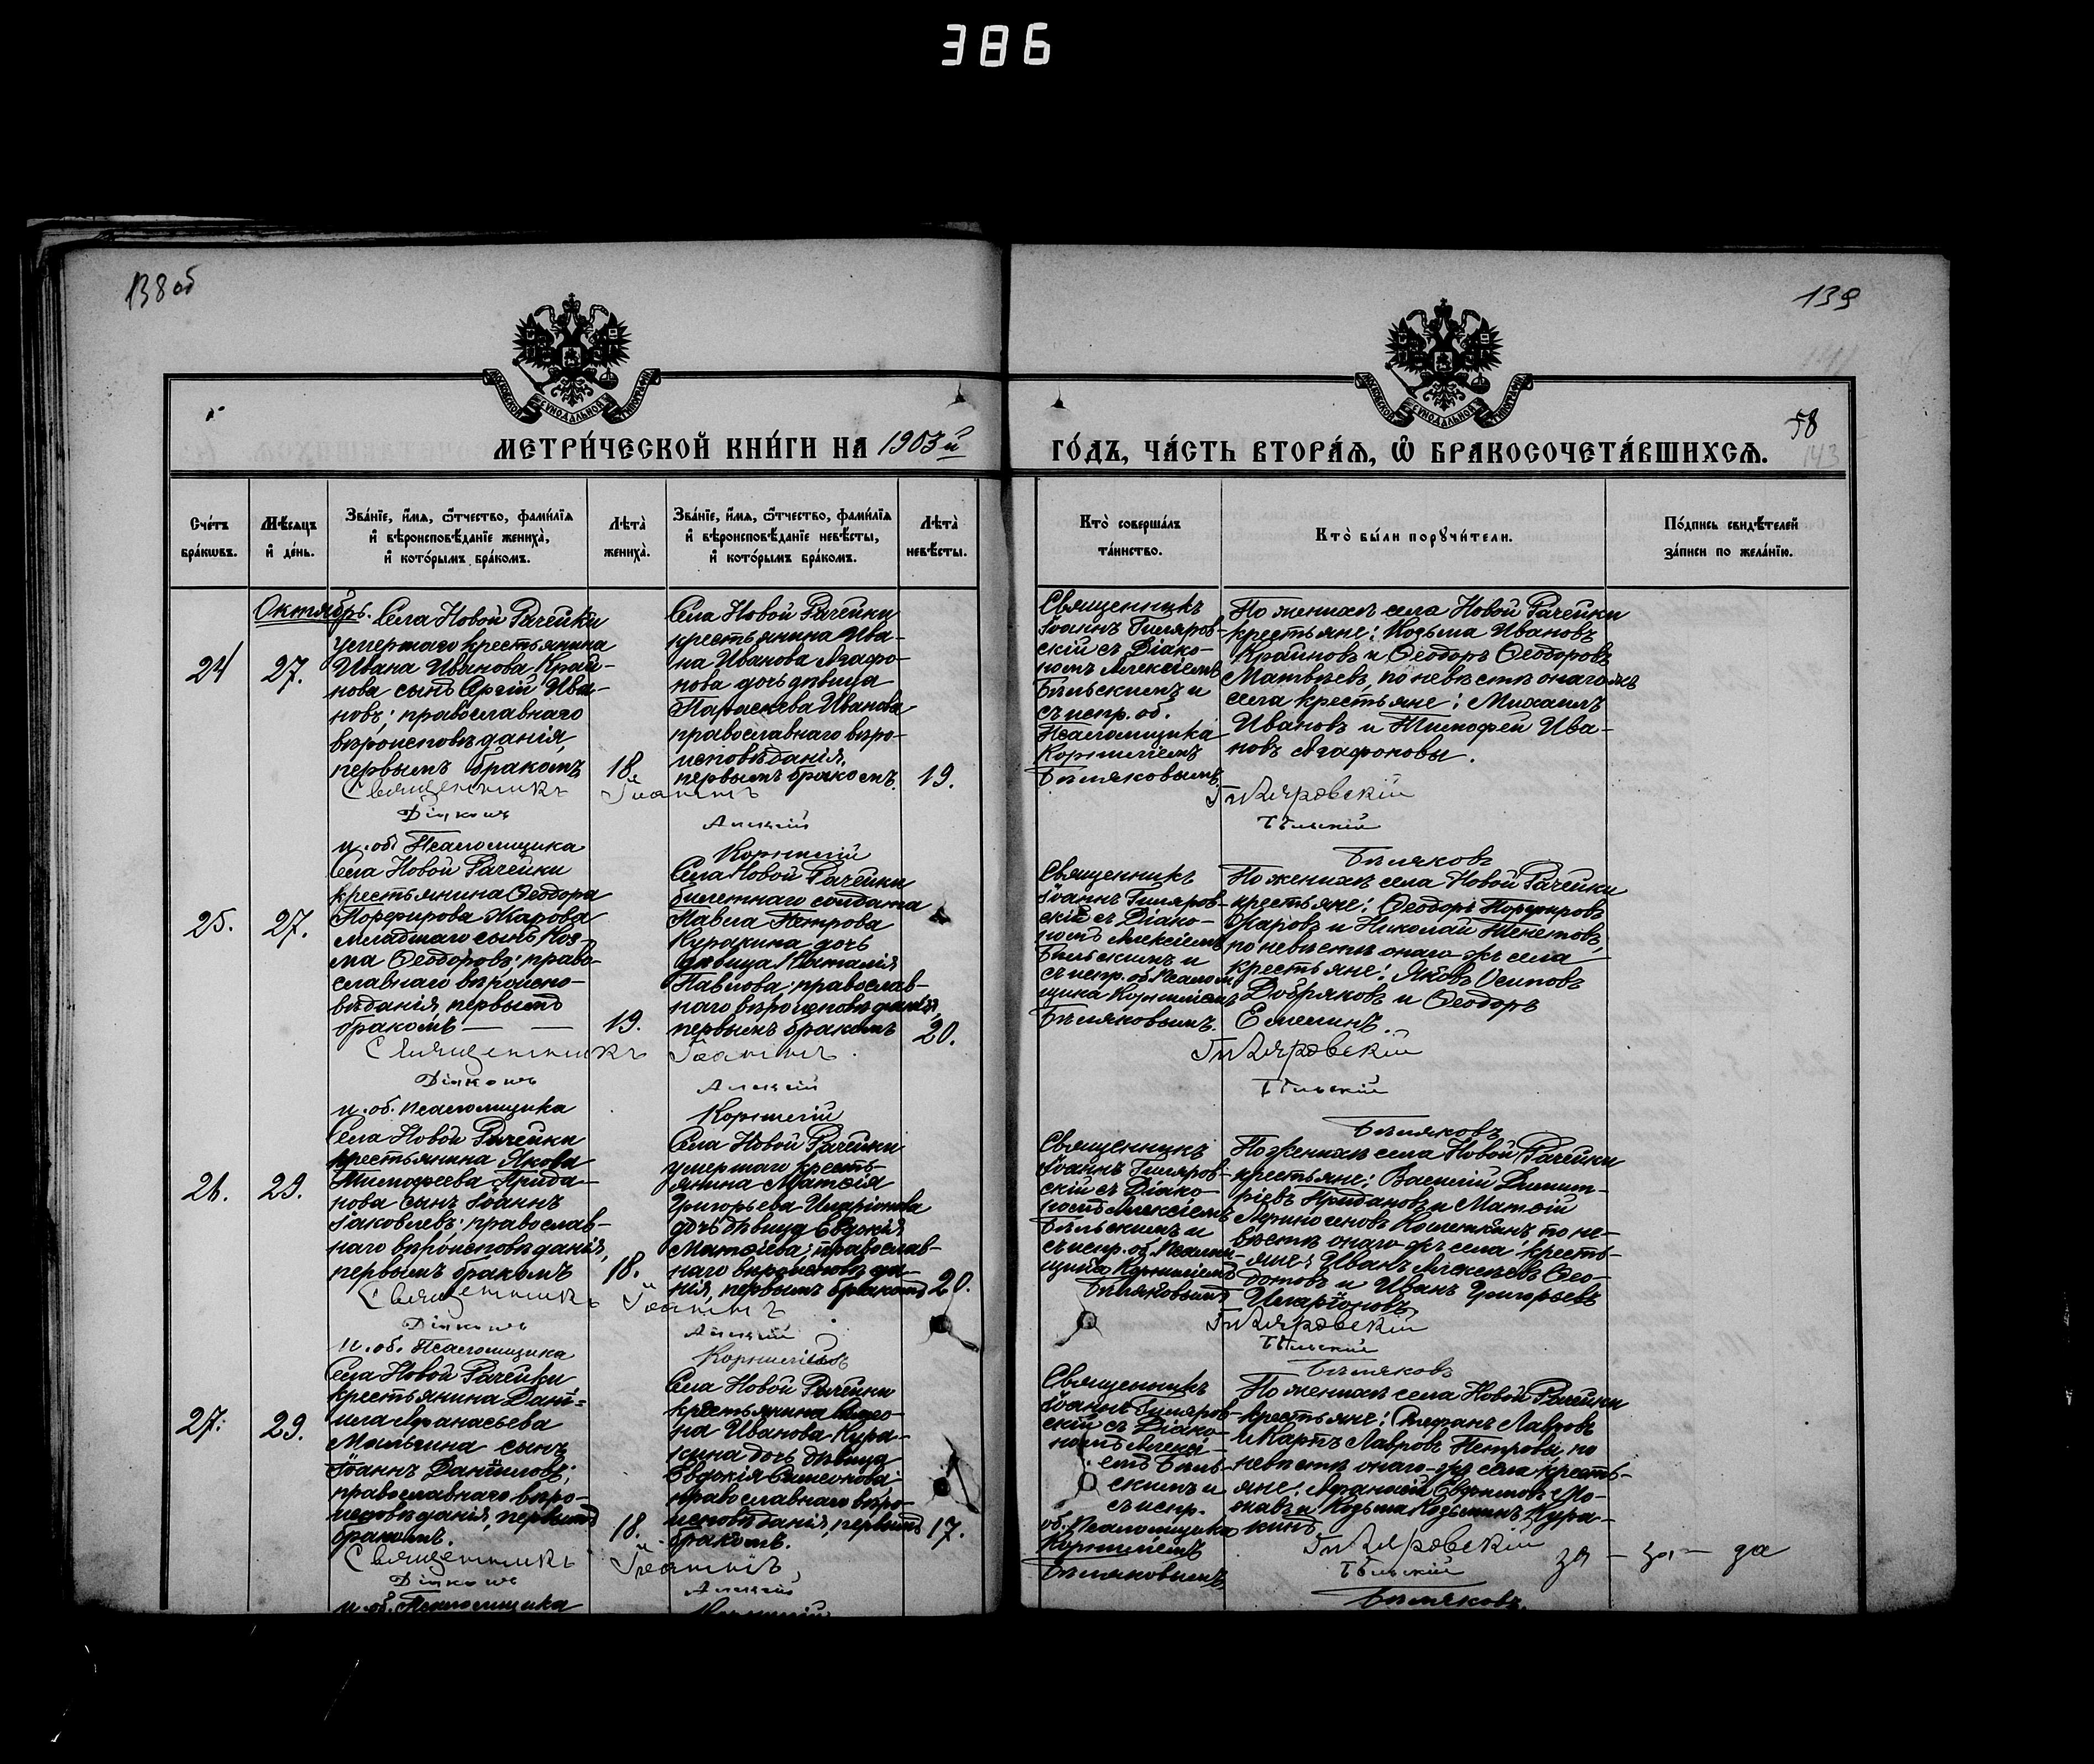 386
138 об
139
МЕТРИ́ЧЕСКОЙ КНИ́ГИ НА 1903 й
ГО́ДЪ, ЧА́СТЬ ВТОРА́Ѧ, Ѡ҆ БРАКОСОЧЕТА́ВШИХСѦ.
58
143
Сче́тъ бра́кѡвъ.
Мѣ́сѧцъ и҆ де́нь.
Зва́нїе, и҆́мѧ, ѻ҆́тчество, фами́лїѧ и҆ вѣроисповѣ́данїе жениха̀, и҆ кото́рымъ бра́комъ.
Лѣта̀ жениха̀.
Зва́нїе, и҆́мѧ, ѻ҆́тчество, фами́лїѧ и҆ вѣроисповѣ́данїе невѣ́сты, и҆ кото́рымъ бра́комъ.
Лѣта̀ невѣ́сты.
Кто̀ соверша́лъ та́инство.
Кто̀ бы́ли порꙋчи́тели.
По́дпись свидѣ́телей за́писи по жела́нїю.
Октябрь.
24
27.
Села Новой Рачейки
умершаго крестьянина
Ивана Иванова Край-
нова сынъ Сергій Ива-
новъ; православнаго
вѣроисповѣданія,
первымъ бракомъ
18.
Села Новой Рачейки
крестьянина Ива-
на Иванова Агафо-
нова дочь дѣвица
Параскева Иванова
православнаго вѣро-
исповѣданія,
первымъ бракомъ.
19.
Священникъ
Іоаннъ Гиляров-
скій съ Діако-
номъ Алексіемъ
Бѣльскимъ и
съ испр. об.
Псаломщика
Корниліемъ
Бѣляковымъ
По женихѣ села Новой Рачейки
крестьяне: Козьма Ивановъ
Крайновъ и Ѳеодоръ Ѳеодоровъ
Матвѣевъ, по невѣстѣ онаго жъ
села крестьяне: Михаилъ
Ивановъ и Тимофей Ива-
новъ Агафоновы.
Священникъ Іоаннъ Гиляровскій
Діаконъ Алексій Бѣльскій
и. об. Псаломщика Корнилій Бѣляковъ
25.
27.
Села Новой Рачейки
крестьянина Ѳеодора
Порфирова Жарова
младшаго сынъ Коз-
ма Ѳеодоровъ; право-
славнаго вѣроиспо-
вѣданія, первымъ
бракомъ — —
19.
Села Новой Рачейки
билетнаго солдата
Павла Петрова
Куракина дочь
дѣвица Наталія
Павлова; православ-
наго вѣроисповѣданія,
первымъ бракомъ
20.
Священникъ
Іоаннъ Гиляров-
скій съ Діако-
номъ Алексіемъ
Бѣльскимъ и
съ испр. об. Псалом-
щика Корниліемъ
Бѣляковымъ.
По женихѣ села Новой Рачейки
крестьяне: Ѳеодоръ Порфировъ
Жаровъ и Николай
по невѣстѣ онаго жъ села
крестьяне: Яковъ Осиповъ
Добряковъ и Ѳеодоръ
Емелинъ.
Священникъ Іоаннъ Гиляровскій
Діаконъ Алексій Бѣльскій
и. об. псаломщика Корнилій Бѣляковъ
26.
29.
Села Новой Рачейки
крестьянина Якова
Тимофеева Прида-
нова сынъ Іоаннъ
Іаковлевъ; православ-
наго вѣроисповѣданія,
первымъ бракомъ
18.
Села Новой Рачейки
умершаго кресть-
янина Матѳія
Григорьева Иларіонова
дочь дѣвица Евдокія
Матѳіева; православ-
наго вѣроисповѣда-
нія, первымъ бракомъ
20.
Священникъ
Іоаннъ Гиляров-
скій съ Діако-
номъ Алексіемъ
Бѣльскимъ и
съ испр. об. Псалом-
щика Корниліемъ
Бѣляковымъ
По женихѣ села Новой Рачейки
крестьяне: Василій Димит-
ріевъ Придановъ и Матѳій
по не-
вѣстѣ онаго жъ села кресть-
яне: Иванъ Алексѣевъ Ѳео-
дотовъ и Иванъ Григорьевъ
Иларіоновъ.
Священникъ Іоаннъ Гиляровскій
Діаконъ Алексій Бѣльскій
и. об. Псаломщика Корнилій Бѣляковъ
27.
29.
Села Новой Рачейки
крестьянина Дані-
ила Афанасьева
Малыгина сынъ
Іоаннъ Даніиловъ;
православнаго вѣро-
исповѣданія, первымъ
бракомъ.
18.
Села Новой Рачейки
крестьянина Симео-
на Иванова Кура-
кина дочь дѣвица
Евдокія Симеонова
православнаго вѣро-
исповѣданія, первымъ
бракомъ.
17.
Священникъ
Іоаннъ Гиляров-
скій съ Діако-
номъ Алексі-
емъ Бѣль-
скимъ и
съ испр.
об. Псаломщика
Корниліемъ
Бѣляковымъ
По женихѣ села Новой Рачейки
крестьяне: Стефанъ Лавровъ
и Карпъ Лавровъ Петровы, по
невѣстѣ онаго жъ села кресть-
яне:
и Козьма Козьминъ Кура-
кинъ
Священникъ Іоаннъ Гиляровскій
Діаконъ Алексій Бѣльскій
и. об. Псаломщика Корнилій Бѣляковъ.